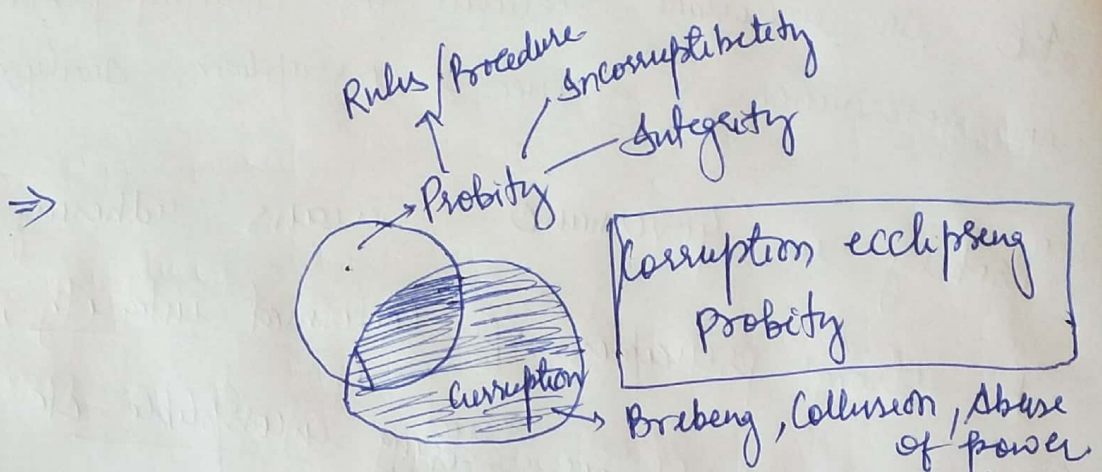 Rules/Procedure
Incorruptibility
Integrity
⇒ Probity
Corruption ecclipseng
Probity
Curruption
Brebeng, Collusion, Abuse
of power